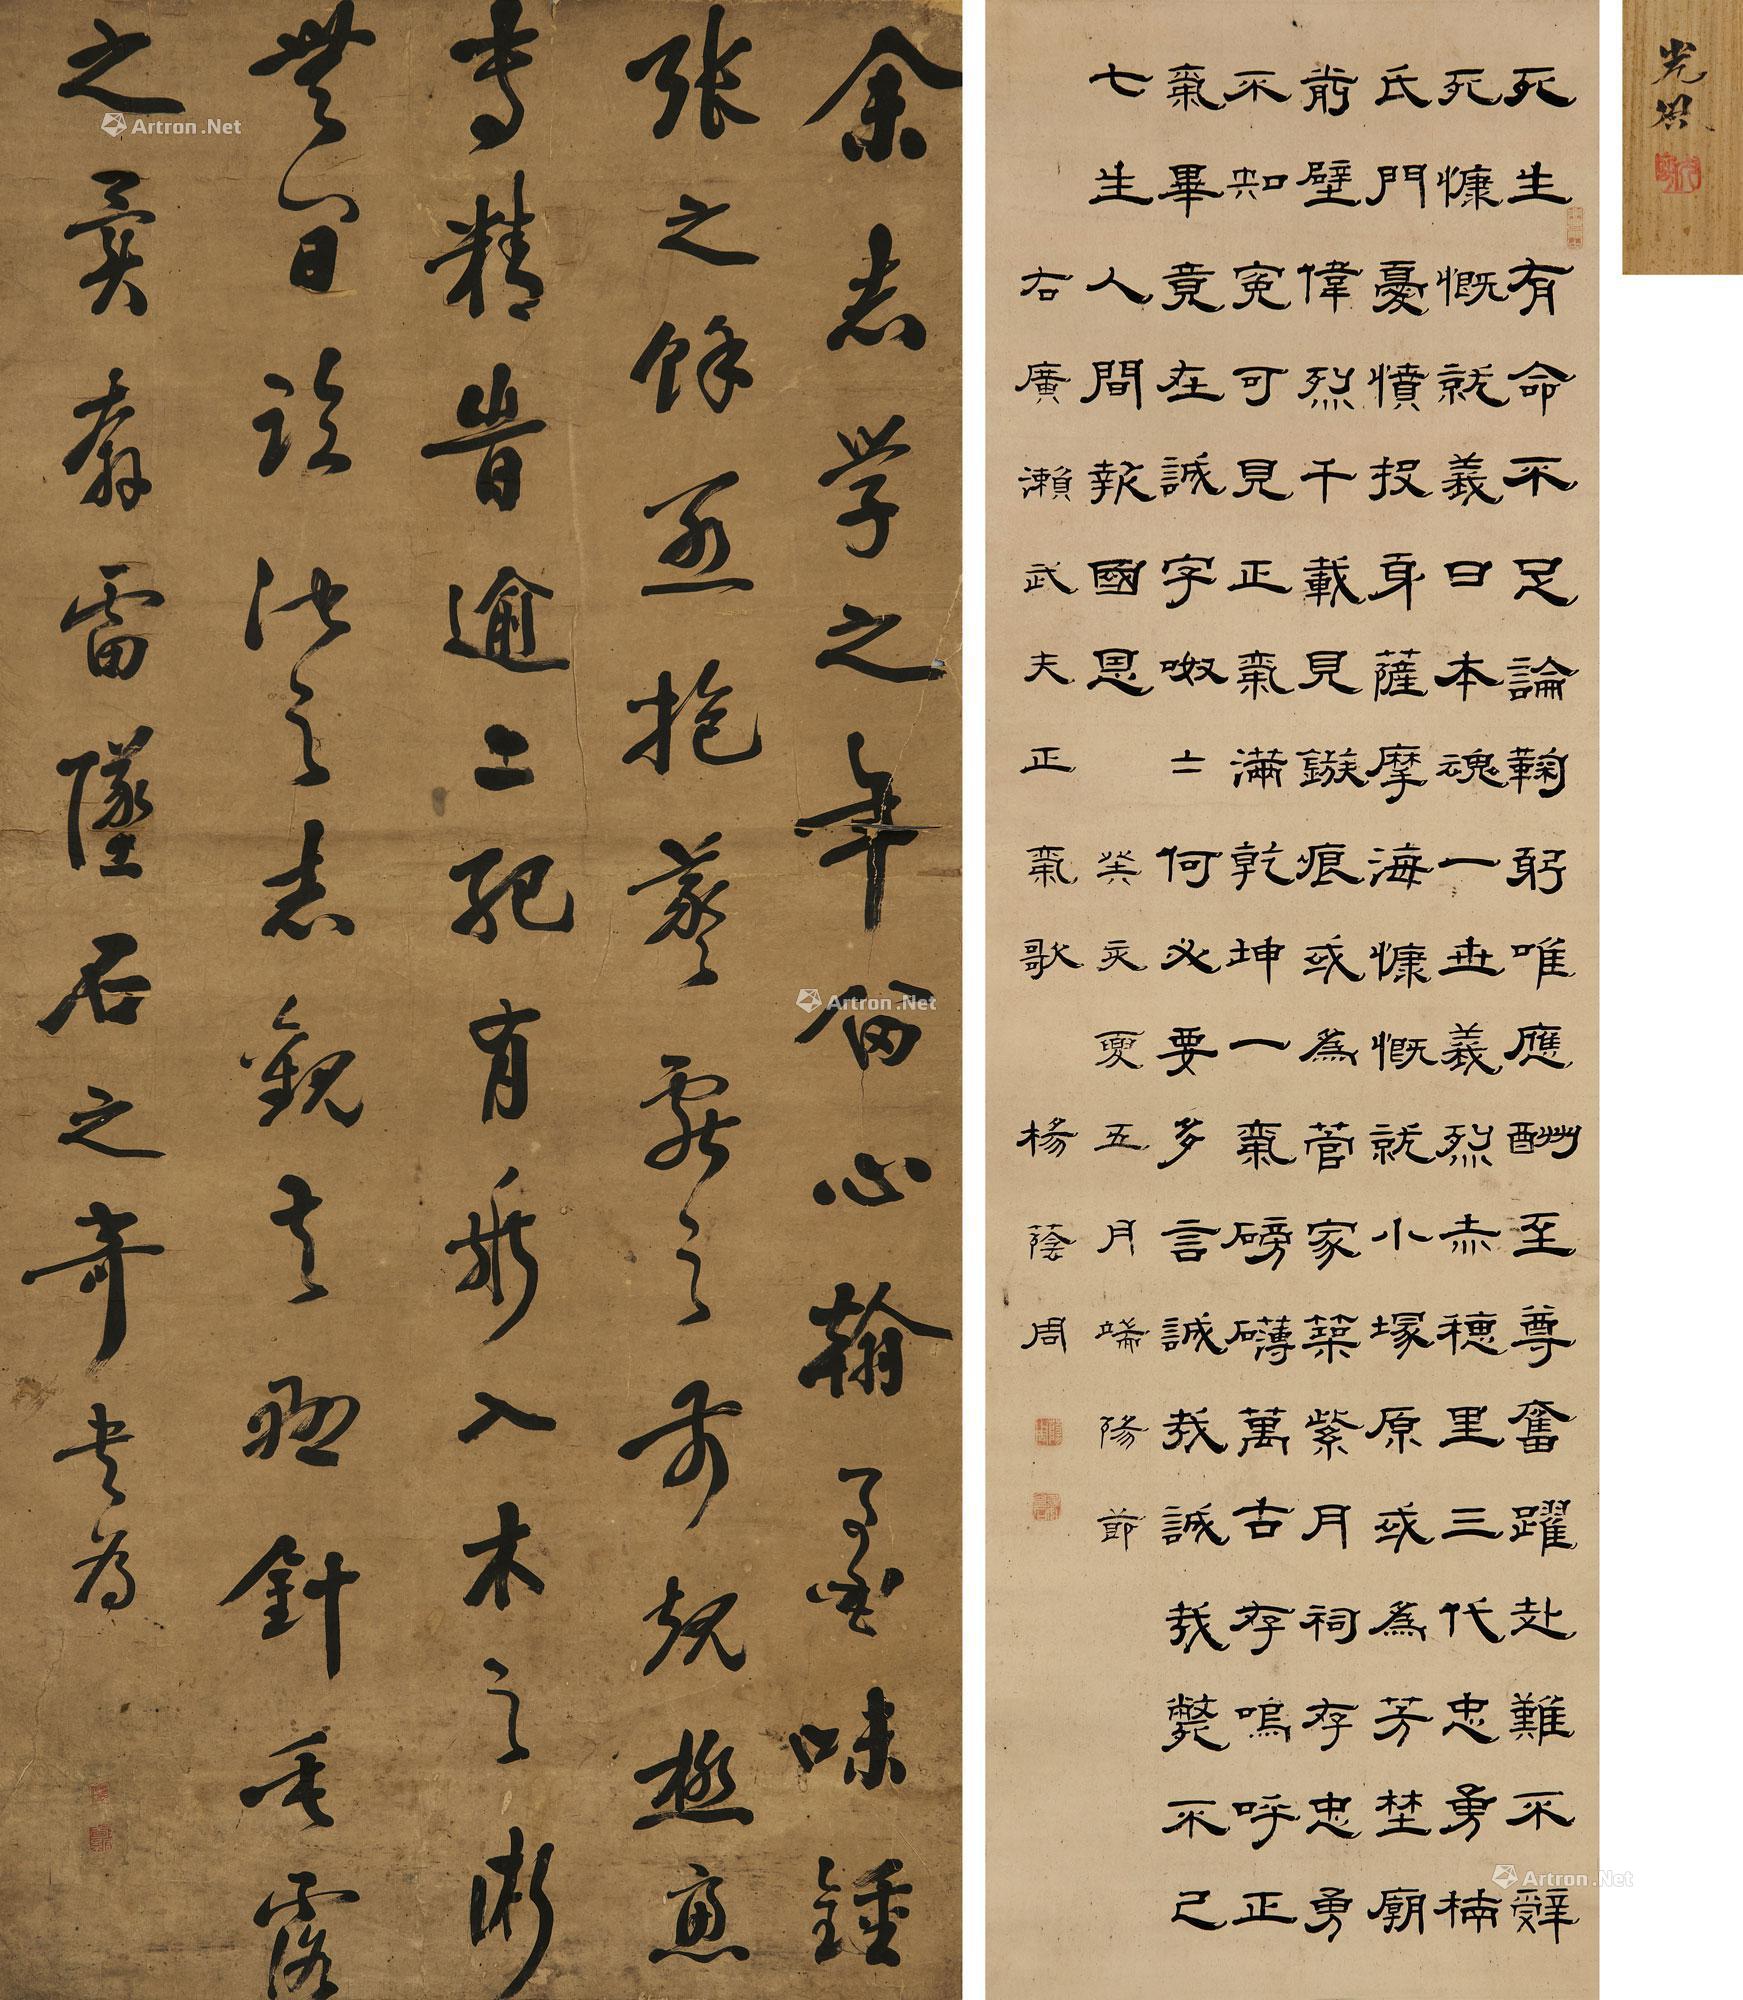 光
死生有命不足論鞠躬唯應酬至尊奮躍赴難不辭
死慷慨就義日本魂一世義烈赤穗里三代忠勇楠
氏門憂憤投身薩摩海慷慨就小塚原或為芳埜廟
前壁偉烈千載見鏃痕或為菅家築紫月祠存忠勇
不知冤可見正氣滿乾坤一氣磅礴萬古存嗚呼正
氣畢竟在誠字呶二何必要多言誠哉誠哉斃不已
七生人間報國恩 癸亥夏五月端陽節
右廣瀨武夫正氣歌 楊蔭周
余志學之年留心翰墨味鍾
張之餘烈挹羲獻之前規極慮
專精旹逾二紀有乖入木之術
無間臨池之志觀夫懸針垂露
之異奔雷墜石之奇
Artron.Net
Artron.Net
Artron.Net